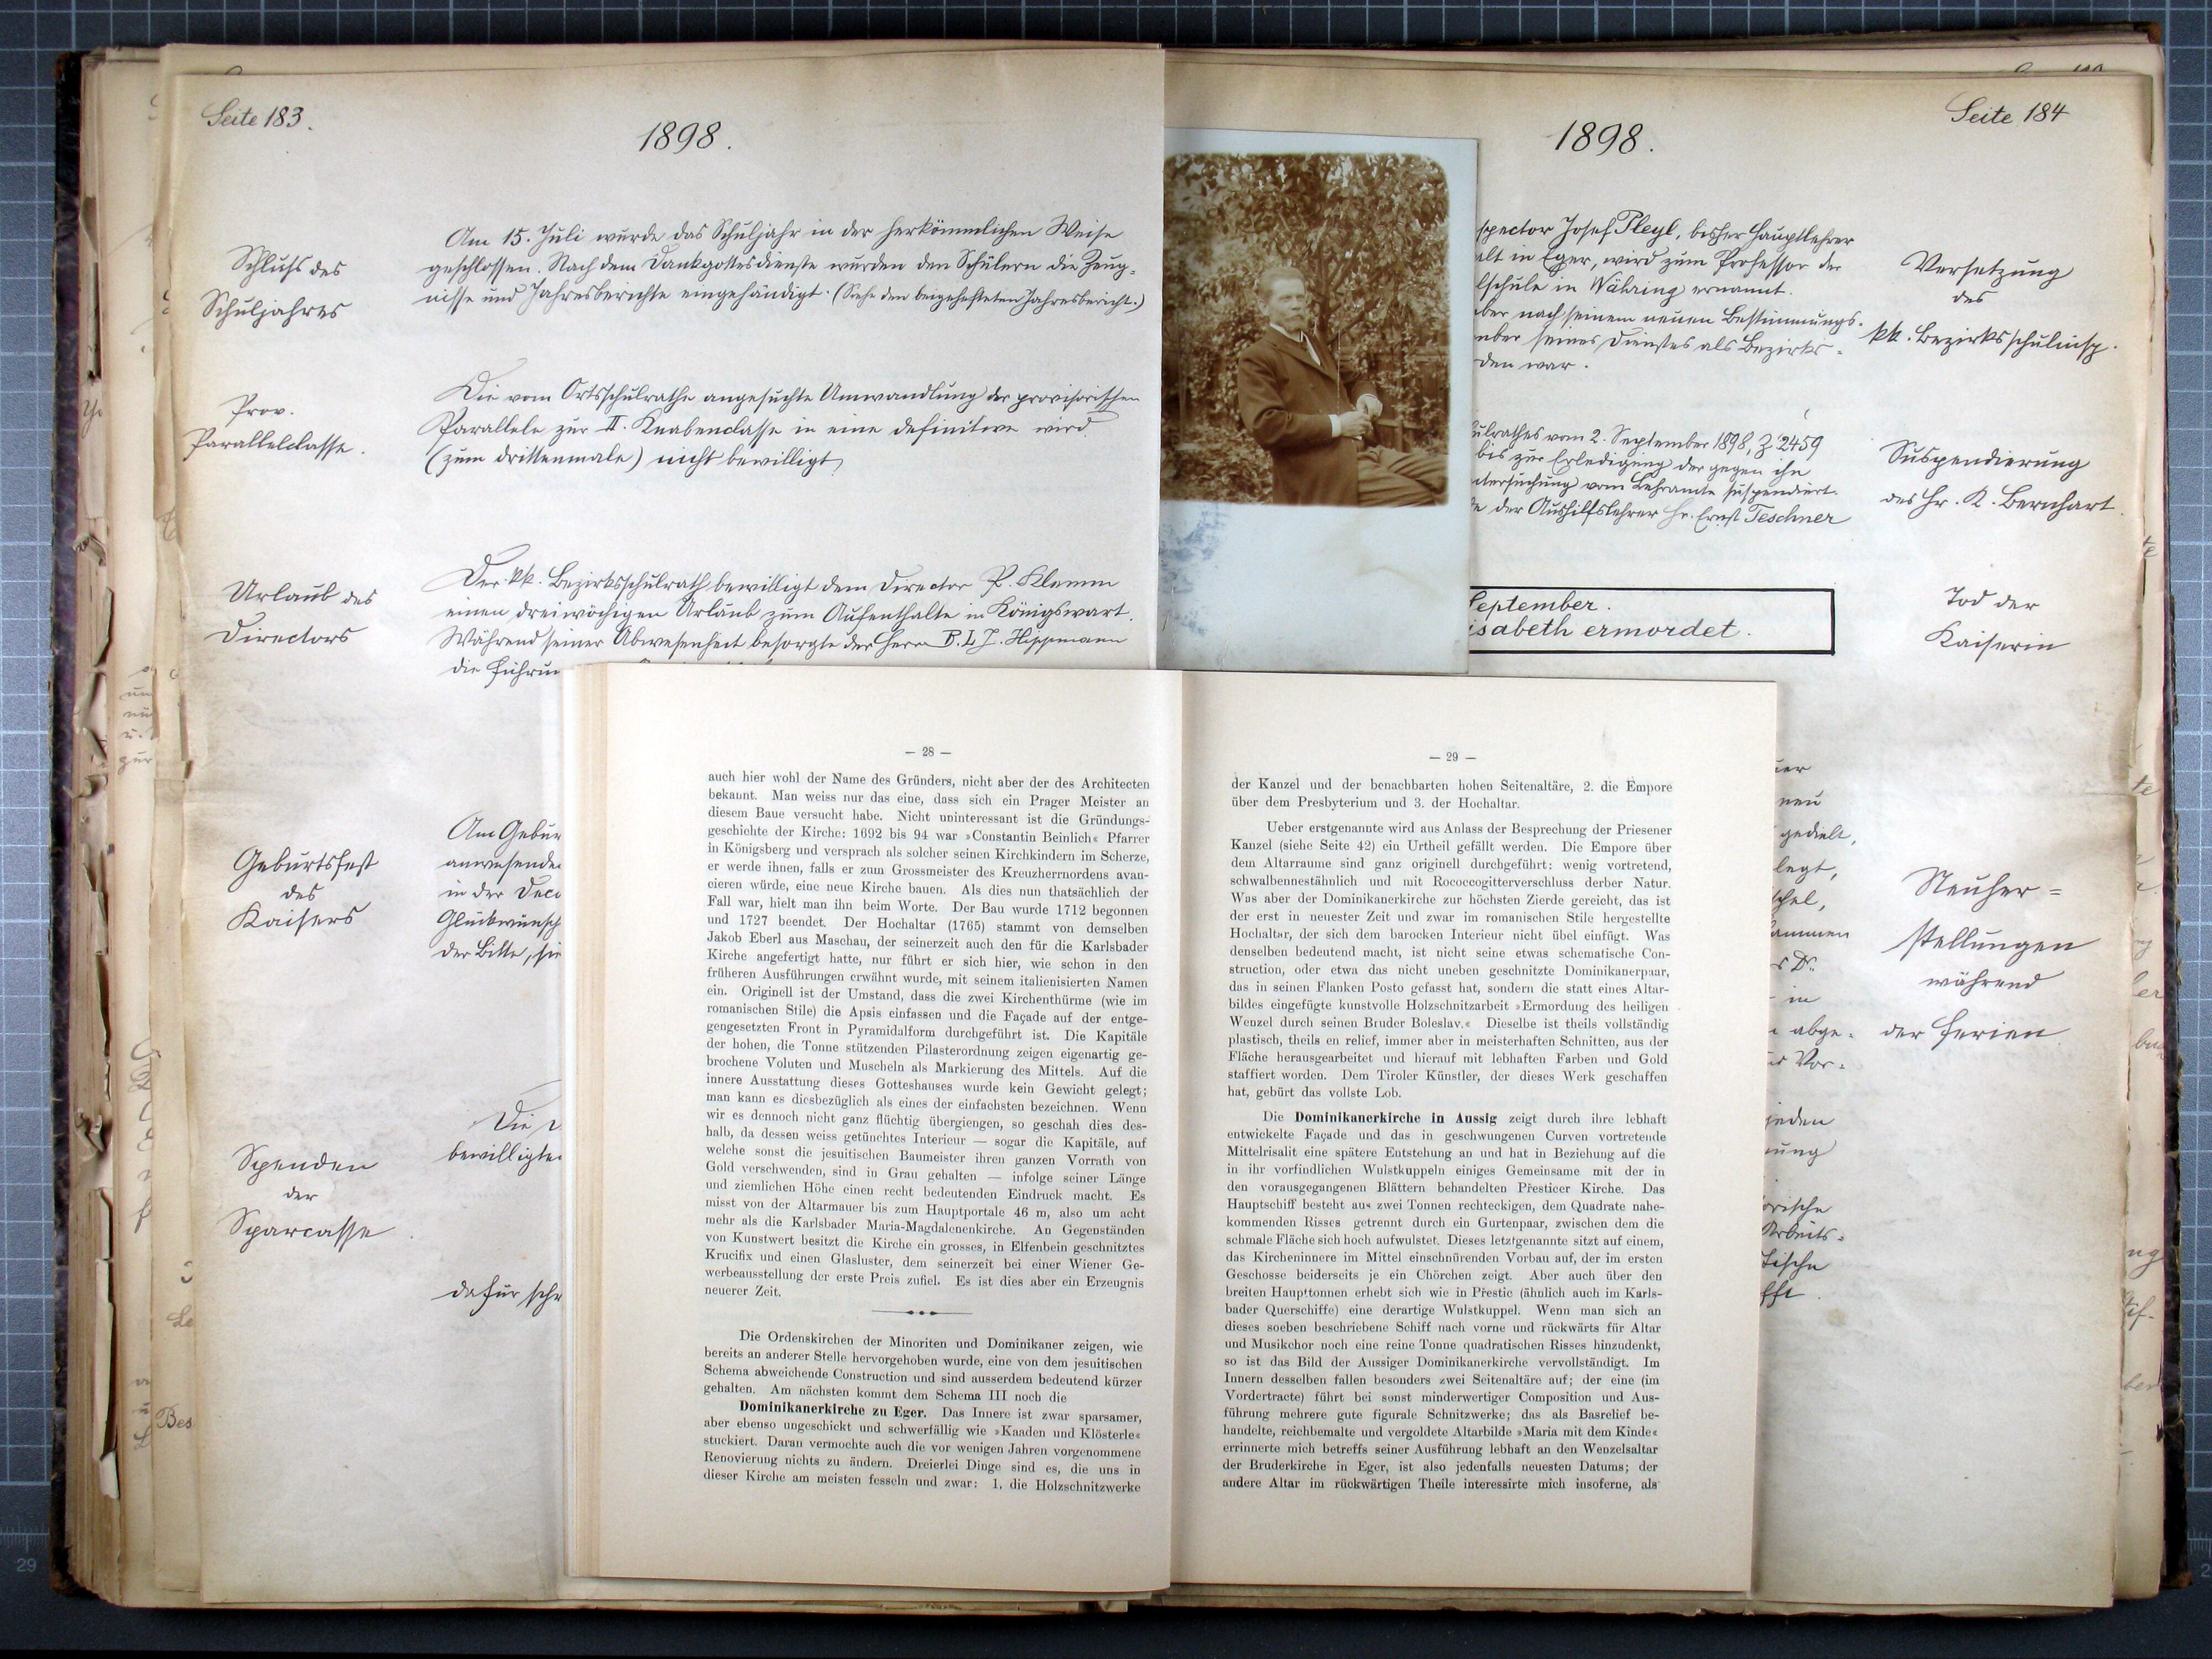 Seite 183.
1898.
Schluß des
Schuljahres
Am 15. Juli wurde das Schuljahr in der herkömmlichen Weise
geschlossen. Nach dem Dankgottesdienste wurden den Schülern die Zeug=
nisse und Jahresberichte eingehändigt. (Siehe den beigehefteten Jahresbericht.)
Prov.
Parallelclasse.
Die vom Ortsschulrathe angesuchte Umwandlung der provisorischen
Parallele zur II. Knabenclasse in eine definitive wird
(zum drittenmale) nicht bewilligt.
Urlaub des
Directors
Der kk. Bezirksschulrath bewilligt dem Director P. Klemm
einen dreiwöchigen Urlaub zum Aufenthalte in Königswart.
Während seiner Abwesenheit besorgte der Herr B. L. J. Hippmann
die Führun
Geburtsfest
des
Kaisers
Am Gebur
anwesende
in der Deca
Glückwünsch
der Bitte, sie
Spenden
der
Sparcasse
Die
bewilligte
dafür sch
Seite 184
1898.
spector Josef Pleyl, bisher Hauptlehrer
alt in Eger, wird zum Professor der
lschule in Währing ernannt.
ber nach seinem neuen Bestimmungs=
mber seines Dienstes als Bezirks=
den war.
Versetzung
des
kk. Bezirksschulinsp.
ulrathes vom 2. September 1898, Z. 2459
bis zur Erledigung der gegen ihn
ntersuchung vom Lehramte suspendiert.
der Aushilfslehrer Hr. Ernst Teschner
Suspendierung
des Hr. K. Bernhart.
September.
isabeth ermordet.
Tod der
Kaiserin
neu
gedielt,
legt,
ammen
s Dr.
in
abge=
Vor=
jeden
ung
orische
Arbeits=
Tische
fft.
Neuher=
stellungen
während
der Ferien
— 28 —
auch hier wohl der Name des Gründers, nicht aber der des Architecten
bekannt. Man weiss nur das eine, dass sich ein Prager Meister an
diesem Baue versucht habe. Nicht uninteressant ist die Gründungs-
geschichte der Kirche: 1692 bis 94 war »Constantin Beinlich« Pfarrer
in Königsberg und versprach als solcher seinen Kirchkindern im Scherze,
er werde ihnen, falls er zum Grossmeister des Kreuzherrnordens avan-
cieren würde, eine neue Kirche bauen. Als dies nun thatsächlich der
Fall war, hielt man ihn beim Worte. Der Bau wurde 1712 begonnen
und 1727 beendet. Der Hochaltar (1765) stammt von demselben
Jakob Eberl aus Maschau, der seinerzeit auch den für die Karlsbader
Kirche angefertigt hatte, nur führt er sich hier, wie schon in den
früheren Ausführungen erwähnt wurde, mit seinem italienisierten Namen
ein. Originell ist der Umstand, dass die zwei Kirchenthürme (wie im
romanischen Stile) die Apsis einfassen und die Façade auf der entge-
gengesetzten Front in Pyramidalform durchgeführt ist. Die Kapitäle
der hohen, die Tonne stützenden Pilasterordnung zeigen eigenartig ge-
brochene Voluten und Muscheln als Markierung des Mittels. Auf die
innere Ausstattung dieses Gotteshauses wurde kein Gewicht gelegt;
man kann es diesbezüglich als eines der einfachsten bezeichnen. Wenn
wir es dennoch nicht ganz flüchtig übergiengen, so geschah dies des-
halb, da dessen weiss getünchtes Interieur — sogar die Kapitäle, auf
welche sonst die jesuitischen Baumeister ihren ganzen Vorrath von
Gold verschwenden, sind in Grau gehalten — infolge seiner Länge
und ziemlichen Höhe einen recht bedeutenden Eindruck macht. Es
misst von der Altarmauer bis zum Hauptportale 46 m, also um acht
mehr als die Karlsbader Maria-Magdalenenkirche. An Gegenständen
von Kunstwert besitzt die Kirche ein grosses, in Elfenbein geschnitztes
Krucifix und einen Glasluster, dem seinerzeit bei einer Wiener Ge-
werbeausstellung der erste Preis zufiel. Es ist dies aber ein Erzeugnis
neuerer Zeit.
Die Ordenskirchen der Minoriten und Dominikaner zeigen, wie
bereits an anderer Stelle hervorgehoben wurde, eine von dem jesuitischen
Schema abweichende Construction und sind ausserdem bedeutend kürzer
gehalten. Am nächsten kommt dem Schema III noch die
Dominikanerkirche zu Eger. Das Innere ist zwar sparsamer,
aber ebenso ungeschickt und schwerfällig wie »Kaaden und Klösterle«
stuckiert. Daran vermochte auch die vor wenigen Jahren vorgenommene
Renovierung nichts zu ändern. Dreierlei Dinge sind es, die uns in
dieser Kirche am meisten fesseln und zwar: 1. die Holzschnitzwerke
— 29 —
der Kanzel und der benachbarten hohen Seitenaltäre, 2. die Empore
über dem Presbyterium und 3. der Hochaltar.
Ueber erstgenannte wird aus Anlass der Besprechung der Priesener
Kanzel (siehe Seite 42) ein Urtheil gefällt werden. Die Empore über
dem Altarraume sind ganz originell durchgeführt: wenig vortretend,
schwalbennestähnlich und mit Rococcogitterverschluss derber Natur.
Was aber der Dominikanerkirche zur höchsten Zierde gereicht, das ist
der erst in neuester Zeit und zwar im romanischen Stile hergestellte
Hochaltar, der sich dem barocken Interieur nicht übel einfügt. Was
denselben bedeutend macht, ist nicht seine etwas schematische Con-
struction, oder etwa das nicht uneben geschnitzte Dominikanerpaar,
das in seinen Flanken Posto gefasst hat, sondern die statt eines Altar-
bildes eingefügte kunstvolle Holzschnitzarbeit »Ermordung des heiligen
Wenzel durch seinen Bruder Boleslav.« Dieselbe ist theils vollständig
plastisch, theils en relief, immer aber in meisterhaften Schnitten, aus der
Fläche herausgearbeitet und hierauf mit lebhaften Farben und Gold
staffiert worden. Dem Tiroler Künstler, der dieses Werk geschaffen
hat, gebürt das vollste Lob.
Die Dominikanerkirche in Aussig zeigt durch ihre lebhaft
entwickelte Façade und das in geschwungenen Curven vortretende
Mittelrisalit eine spätere Entstehung an und hat in Beziehung auf die
in ihr vorfindlichen Wulstkuppeln einiges Gemeinsame mit der in
den vorausgegangenen Blättern behandelten Přesticer Kirche. Das
Hauptschiff besteht aus zwei Tonnen rechteckigen, dem Quadrate nahe-
kommenden Risses getrennt durch ein Gurtenpaar, zwischen dem die
schmale Fläche sich hoch aufwulstet. Dieses letztgenannte sitzt auf einem,
das Kircheninnere im Mittel einschnürenden Vorbau auf, der im ersten
Geschosse beiderseits je ein Chörchen zeigt. Aber auch über den
breiten Haupttonnen erhebt sich wie in Přestic (ähnlich auch im Karls-
bader Querschiffe) eine derartige Wulstkuppel. Wenn man sich an
dieses soeben beschriebene Schiff nach vorne und rückwärts für Altar
und Musikchor noch eine reine Tonne quadratischen Risses hinzudenkt,
so ist das Bild der Aussiger Dominikanerkirche vervollständigt. Im
Innern desselben fallen besonders zwei Seitenaltäre auf; der eine (im
Vordertracte) führt bei sonst minderwertiger Composition und Aus-
führung mehrere gute figurale Schnitzwerke; das als Basrelief be-
handelte, reichbemalte und vergoldete Altarbilde »Maria mit dem Kinde«
errinnerte mich betreffs seiner Ausführung lebhaft an den Wenzelsaltar
der Bruderkirche in Eger, ist also jedenfalls neuesten Datums; der
andere Altar im rückwärtigen Theile interessirte mich insoferne, als
Bes
29